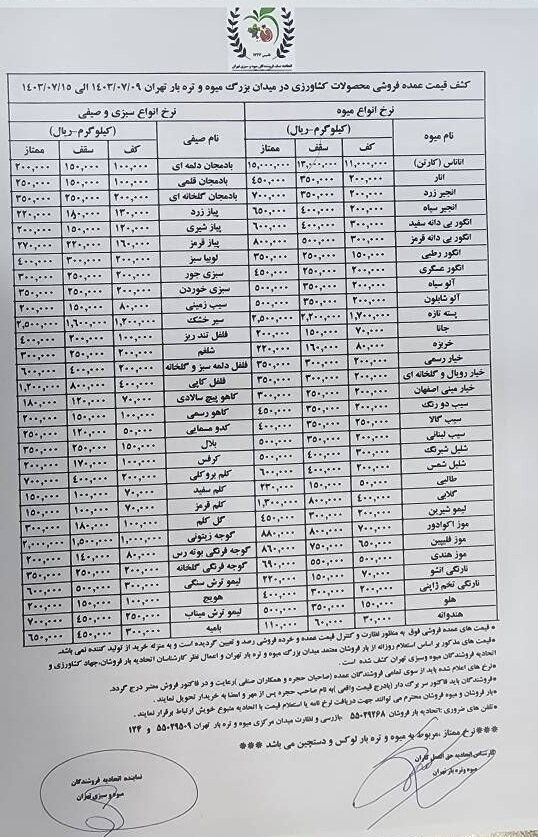 اتحادیه صنف فروشندگان میوه و سبزی تهران
کشف قیمت عمده فروشی محصولات کشاورزی در میدان بزرگ میوه و تره بار تهران ۱۴۰۳/۰۷/۰۹ الی ۱۴۰۳/۰۷/۱۵
نرخ انواع میوه نرخ انواع سبزی و صیفی
نام میوه (کیلوگرم-ریال) نام صیفی (کیلوگرم-ریال)
کف سقف ممتاز کف سقف ممتاز
آناناس (کارتن) ۱۱,۰۰۰,۰۰۰ ۱۳,۰۰۰,۰۰۰ ۱۵,۰۰۰,۰۰۰ بادمجان دلمه ای ۱۰۰,۰۰۰ ۱۵۰,۰۰۰ ۲۰۰,۰۰۰
انار ۲۰۰,۰۰۰ ۳۵۰,۰۰۰ ۴۵۰,۰۰۰ بادمجان قلمی ۱۰۰,۰۰۰ ۱۵۰,۰۰۰ ۲۵۰,۰۰۰
انجیر زرد ۲۰۰,۰۰۰ ۳۵۰,۰۰۰ ۷۰۰,۰۰۰ بادمجان گلخانه ای ۲۰۰,۰۰۰ ۲۵۰,۰۰۰ ۳۵۰,۰۰۰
انجیر سیاه ۲۰۰,۰۰۰ ۴۰۰,۰۰۰ ۶۵۰,۰۰۰ پیاز زرد ۱۳۰,۰۰۰ ۱۸۰,۰۰۰ ۲۲۰,۰۰۰
انگور بی دانه سفید ۳۰۰,۰۰۰ ۴۰۰,۰۰۰ ۶۰۰,۰۰۰ پیاز شیری ۱۲۰,۰۰۰ ۱۵۰,۰۰۰ ۲۰۰,۰۰۰
انگور بی دانه قرمز ۳۰۰,۰۰۰ ۵۰۰,۰۰۰ ۸۰۰,۰۰۰ پیاز قرمز ۱۶۰,۰۰۰ ۲۲۰,۰۰۰ ۲۷۰,۰۰۰
انگور رطبی ۱۵۰,۰۰۰ ۲۵۰,۰۰۰ ۳۵۰,۰۰۰ لوبیا سبز ۲۰۰,۰۰۰ ۳۰۰,۰۰۰ ۴۰۰,۰۰۰
انگور عسگری ۲۰۰,۰۰۰ ۲۵۰,۰۰۰ ۴۵۰,۰۰۰ سبزی جور ۲۰۰,۰۰۰ ۲۵۰,۰۰۰ ۳۰۰,۰۰۰
آلو سیاه ۲۰۰,۰۰۰ ۳۵۰,۰۰۰ ۵۰۰,۰۰۰ سبزی خوردن ۲۰۰,۰۰۰ ۲۵۰,۰۰۰ ۳۵۰,۰۰۰
آلو شابلون ۲۰۰,۰۰۰ ۳۵۰,۰۰۰ ۵۰۰,۰۰۰ سیب زمینی ۸۰,۰۰۰ ۱۵۰,۰۰۰ ۲۰۰,۰۰۰
پسته تازه ۱,۷۰۰,۰۰۰ ۲,۲۰۰,۰۰۰ ۲,۵۰۰,۰۰۰ سیر خشک ۱,۲۰۰,۰۰۰ ۱,۶۰۰,۰۰۰ ۲,۵۰۰,۰۰۰
جانا ۷۰,۰۰۰ ۱۵۰,۰۰۰ ۲۰۰,۰۰۰ فلفل تند ریز ۱۰۰,۰۰۰ ۲۰۰,۰۰۰ ۴۰۰,۰۰۰
خربزه ۸۰,۰۰۰ ۱۶۰,۰۰۰ ۲۲۰,۰۰۰ شلغم ۲۰۰,۰۰۰ ۲۵۰,۰۰۰ ۳۰۰,۰۰۰
خیار رسمی ۲۰۰,۰۰۰ ۳۰۰,۰۰۰ ۳۵۰,۰۰۰ فلفل دلمه سبز و گلخانه ۲۰۰,۰۰۰ ۴۰۰,۰۰۰ ۶۰۰,۰۰۰
خیار رویال و گلخانه ای ۲۰۰,۰۰۰ ۳۰۰,۰۰۰ ۳۵۰,۰۰۰ فلفل کاپی ۴۰۰,۰۰۰ ۸۰۰,۰۰۰ ۱,۲۰۰,۰۰۰
خیار مینی اصفهان ۲۰۰,۰۰۰ ۲۵۰,۰۰۰ ۳۰۰,۰۰۰ کاهو پیچ سالادی ۷۰,۰۰۰ ۱۲۰,۰۰۰ ۱۸۰,۰۰۰
سیب دو رنگ ۲۰۰,۰۰۰ ۳۵۰,۰۰۰ ۴۵۰,۰۰۰ کاهو رسمی ۱۰۰,۰۰۰ ۱۵۰,۰۰۰ ۲۰۰,۰۰۰
سیب گالا ۲۰۰,۰۰۰ ۲۵۰,۰۰۰ ۳۵۰,۰۰۰ کدو مسمایی ۵۰,۰۰۰ ۱۲۰,۰۰۰ ۲۵۰,۰۰۰
سیب لبنانی ۲۰۰,۰۰۰ ۳۵۰,۰۰۰ ۵۰۰,۰۰۰ بلال ۱۵۰,۰۰۰ ۲۵۰,۰۰۰ ۳۵۰,۰۰۰
شلیل شبرنگ ۳۰۰,۰۰۰ ۴۰۰,۰۰۰ ۵۰۰,۰۰۰ کرفس ۱۰۰,۰۰۰ ۱۷۰,۰۰۰ ۲۰۰,۰۰۰
شلیل شمس ۲۰۰,۰۰۰ ۴۰۰,۰۰۰ ۶۰۰,۰۰۰ کلم بروکلی ۲۰۰,۰۰۰ ۴۰۰,۰۰۰ ۷۰۰,۰۰۰
طالبی ۵۰,۰۰۰ ۱۵۰,۰۰۰ ۲۳۰,۰۰۰ کلم سفید ۷۰,۰۰۰ ۱۰۰,۰۰۰ ۱۵۰,۰۰۰
گلابی ۴۰۰,۰۰۰ ۸۰۰,۰۰۰ ۱,۳۰۰,۰۰۰ کلم قرمز ۷۰,۰۰۰ ۱۰۰,۰۰۰ ۱۵۰,۰۰۰
لیمو شیرین ۲۰۰,۰۰۰ ۳۰۰,۰۰۰ ۴۵۰,۰۰۰ گل کلم ۱۰۰,۰۰۰ ۱۸۰,۰۰۰ ۳۰۰,۰۰۰
موز اکوادور ۷۰۰,۰۰۰ ۸۰۰,۰۰۰ ۸۸۰,۰۰۰ گوجه زیتونی ۱,۰۰۰,۰۰۰ ۱,۵۰۰,۰۰۰ ۲,۰۰۰,۰۰۰
موز فلیپین ۶۵۰,۰۰۰ ۷۵۰,۰۰۰ ۸۶۰,۰۰۰ گوجه فرنگی بوته رس ۸۰,۰۰۰ ۱۴۰,۰۰۰ ۲۰۰,۰۰۰
موز هندی ۵۰۰,۰۰۰ ۵۵۰,۰۰۰ ۶۹۰,۰۰۰ گوجه فرنگی گلخانه ۲۰۰,۰۰۰ ۲۵۰,۰۰۰ ۳۵۰,۰۰۰
نارنگی انشو ۷۰,۰۰۰ ۱۵۰,۰۰۰ ۲۲۰,۰۰۰ لیمو ترش سنگی ۳۰۰,۰۰۰ ۵۰۰,۰۰۰ ۶۰۰,۰۰۰
نارنگی تخم ژاپنی ۲۰۰,۰۰۰ ۳۰۰,۰۰۰ ۴۰۰,۰۰۰ هویج ۱۰۰,۰۰۰ ۱۵۰,۰۰۰ ۲۰۰,۰۰۰
هلو ۱۵۰,۰۰۰ ۳۵۰,۰۰۰ ۵۰۰,۰۰۰ لیمو ترش میناب ۲۵۰,۰۰۰ ۴۵۰,۰۰۰ ۷۰۰,۰۰۰
هندوانه ۳۰,۰۰۰ ۶۰,۰۰۰ ۱۱۰,۰۰۰ بامیه ۳۰۰,۰۰۰ ۴۵۰,۰۰۰ ۶۵۰,۰۰۰
* قیمت های عمده فروشی فوق به منظور نظارت و کنترل قیمت عمده و خرده فروشی رصد و تعیین گردیده است و به منزله خرید از تولید کننده نمی باشد.
* قیمت های مذکور بر اساس استعلام روزانه از بار فروشان معتمد میدان بزرگ میوه و تره بار تهران و اعمال نظر کارشناسان اتحادیه بار فروشان،جهاد کشاورزی و
اتحادیه فروشندگان میوه وسبزی تهران کشف شده است.
* نرخ های اعلام شده باید از سوی تمامی فروشندگان عمده (صاحبان حجره و همکاران صنفی )رعایت و در فاکتور فروش معتبر درج گردد.
* فروشندگان باید فاکتور سر برگ دار (بادرج قیمت واقعی )به نام صاحب حجره پس از مهر و امضا به خریدار تحویل نمایند.
* بار فروشان و میوه فروشان محترم می توانند جهت دریافت نرخ نامه یا استعلام قیمت با اتحادیه متبوع خویش ارتباط برقرار نمایند.
* تلفن های ضروری :اتحادیه بار فروشان ۵۵۰۲۹۲۶۸ بازرسی و نظارت میدان مرکزی میوه و تره بار تهران ۵۵۰۲۹۵۰۹ و ۱۲۴
***نرخ ممتاز ،مربوط به میوه و تره بار لوکس و دستچین می باشد ***
کارشناس اتحادیه حق العمل کاران
میوه و تره بار تهران
نماینده اتحادیه فروشندگان
میوه و سبزی تهران